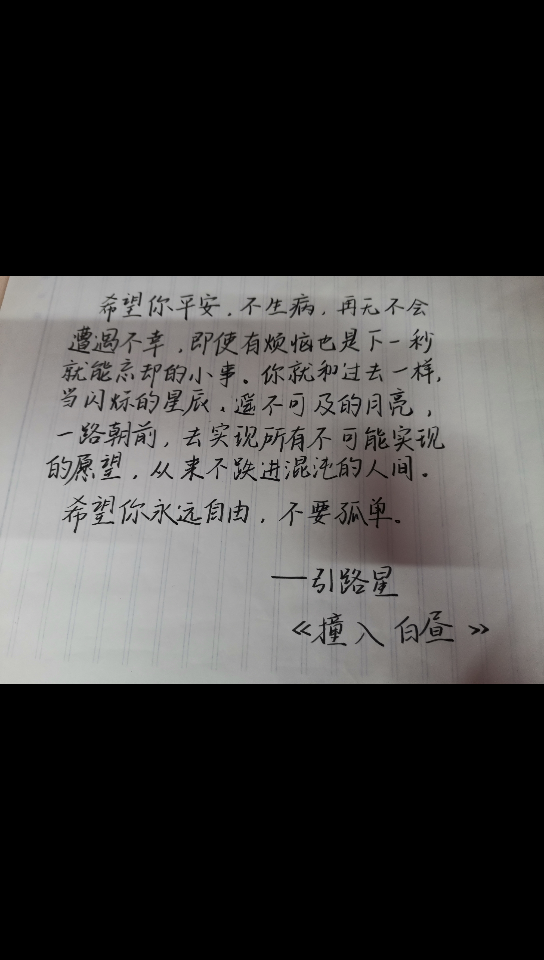 希望你平安，不生病，再无不会
遭遇不幸，即使有烦恼也是下一秒
就能忘却的小事。你就和过去一样，
当闪烁的星辰、遥不可及的月亮，
一路朝前，去实现所有不可能实现
的愿望，从来不跌进混沌的人间。
希望你永远自由，不要孤单。
——引路星
《撞入白昼》